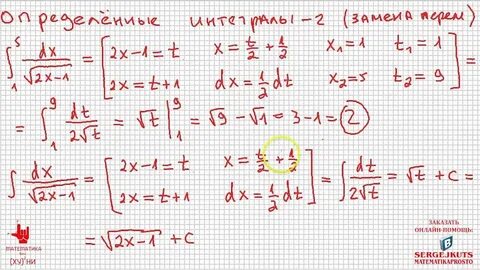 Определённые интегралы-2 (замена перем)
∫₁⁵ dx/√(2x-1) = [2x-1=t x=t/2+1/2 x₁=1 t₁=1
2x=t+1 dx=1/2 dt x₂=5 t₂=9] =
= ∫₁⁹ dt/(2√t) = √t |₁⁹ = √9 - √1 = 3-1 = 2
∫ dx/√(2x-1) = [2x-1=t x=t/2+1/2
2x=t+1 dx=1/2 dt] = ∫ dt/(2√t) = √t + C =
= √(2x-1) + C
МАТЕМАТИКА
ЗАКАЗАТЬ
ОНЛАЙН-ПОМОЩЬ:
SERGEJKUTS
MATEMATIKAPROSTO